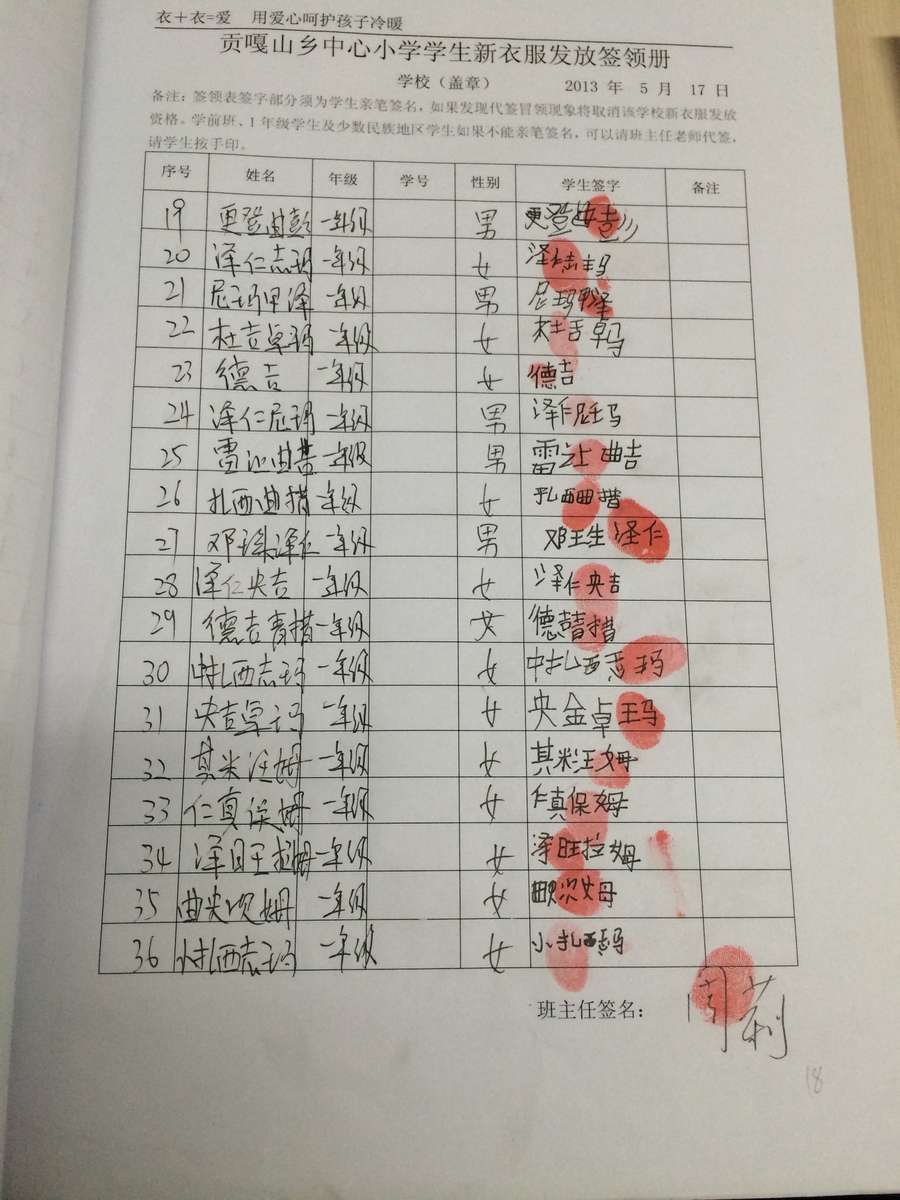 衣+衣=爱 用爱心呵护孩子冷暖
贡嘎山乡中心小学学生新衣服发放签领册
学校（盖章） 2013 年 5 月 17 日
备注：签领表签字部分须为学生亲笔签名，如果发现代签冒领现象将取消该学校新衣服发放
资格。学前班、1 年级学生及少数民族地区学生如果不能亲笔签名，可以请班主任老师代签，
请学生按手印。
序号 姓名 年级 学号 性别 学生签字 备注
19 更登曲彭 一年级 男 更登曲彭
20 泽仁志玛 一年级 女 泽仁志玛
21 尼玛甲泽 一年级 男 尼玛甲泽
22 杜吉卓玛 一年级 女 杜吉卓玛
23 德吉 一年级 女 德吉
24 泽仁尼玛 一年级 男 泽仁尼玛
25 一年级 男
26 扎西曲措 一年级 女 扎西曲措
27 邓珠泽仁 一年级 男 泽仁
28 泽仁央吉 一年级 女 泽仁央吉
29 德吉青措 一年级 女 德吉青措
30 中扎西志玛 一年级 女 中扎西志玛
31 央吉卓玛 一年级 女 央金卓玛
32 其米汪姆 一年级 女 其米汪姆
33 仁真保姆 一年级 女 仁真保姆
34 泽旺拉姆 一年级 女 泽旺拉姆
35 曲央次姆 一年级 女
36 小扎西志玛 一年级 女 小扎西志玛
班主任签名： 周莉
18